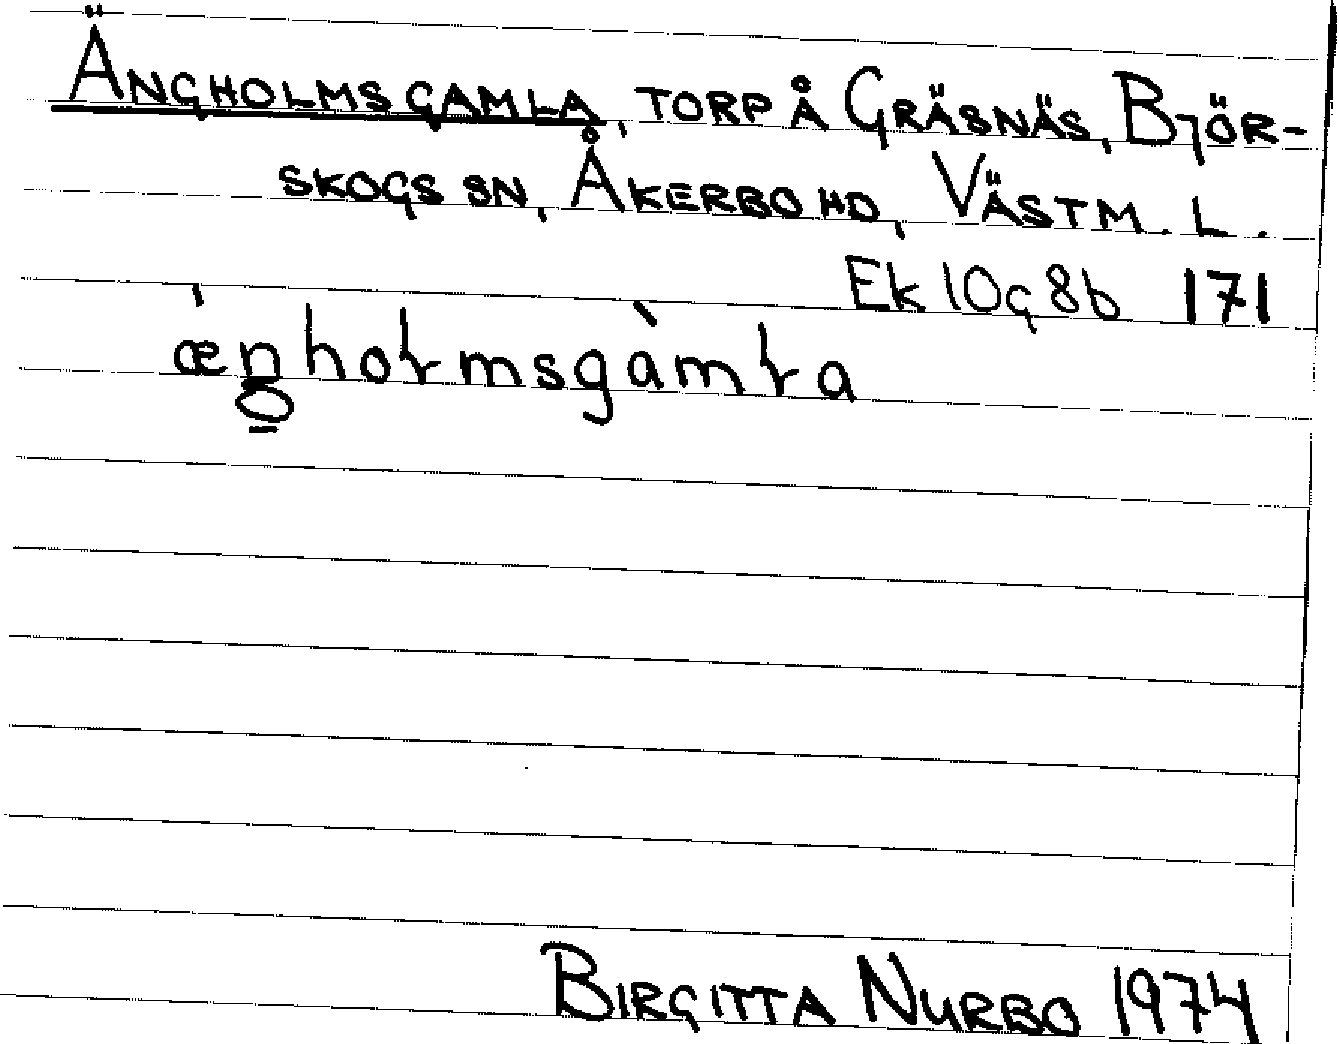 ÄNGHOLMSGAMLA, TORP Å GRÄSNÄS, BJÖR-
SKOGS SN, ÅKERBO HD, VÄSTM. L.
Ek 10g 8b 171
ængholmsgàmla
BIRGITTA NURBO 1974